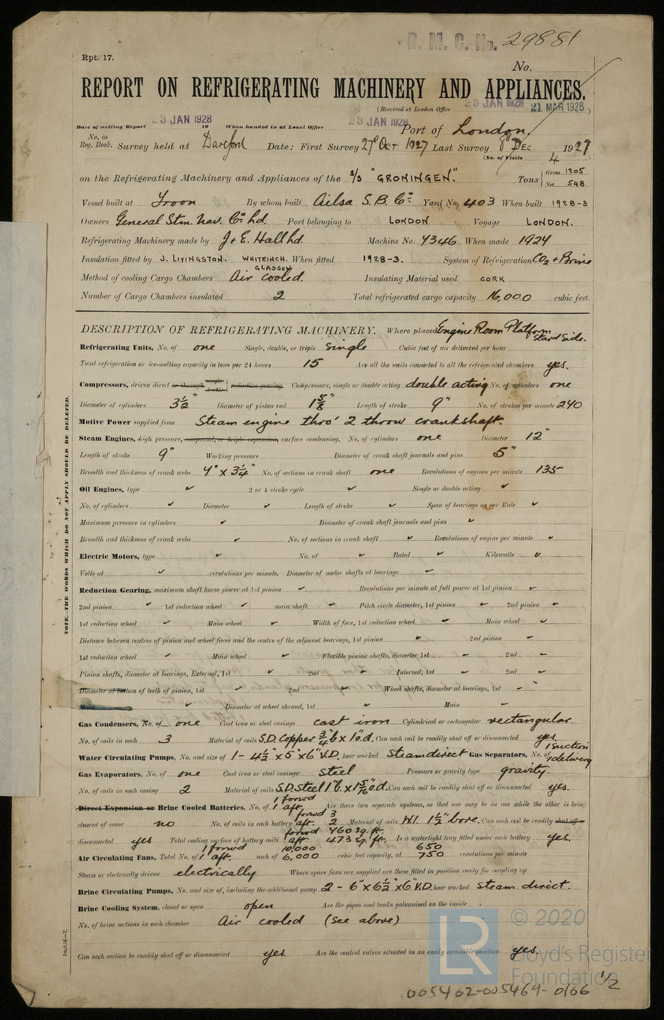 R. M. C. No. 29881
Rpt. 17.
No.
REPORT ON REFRIGERATING MACHINERY AND APPLIANCES.
(Received at London Office 23 JAN 1928 21 MAR 1928)
Date of writing Report 23 JAN 1928 19 When handed in at Local Office 23 JAN 1928 Port of London
No. in Reg. Book. Survey held at Dartford Date: First Survey 27th Oct. 1927 Last Survey 8th Dec. 1927
(No. of Visits 4
on the Refrigerating Machinery and Appliances of the S/S "GRONINGEN". Tons Gross 1205 Net 548
Vessel built at Troon By whom built Ailsa S.B. Co. Yard No. 403 When built 1928-3
Owners General Stm. Nav. Co. Ld Port belonging to LONDON Voyage LONDON.
Refrigerating Machinery made by J & E. Hall Ld. Machine No. 4346 When made 1927
Insulation fitted by J. LIVINGSTON. WHITEINCH. GLASGOW When fitted 1928-3. System of Refrigeration CO2 & Brine
Method of cooling Cargo Chambers Air cooled. Insulating Material used CORK
Number of Cargo Chambers insulated 2 Total refrigerated cargo capacity 16,000 cubic feet.
DESCRIPTION OF REFRIGERATING MACHINERY. Where placed Engine Room Platform Stard Side.
Refrigerating Units, No. of one Single, double, or triple Single Cubic feet of air delivered per hour
Total refrigeration or ice-melting capacity in tons per 24 hours 15 Are all the units connected to all the refrigerated chambers yes.
Compressors, driven direct or through single double reduction gearing. Compressors, single or double acting double acting No. of cylinders one
Diameter of cylinders 3½" Diameter of piston rod 1⅝" Length of stroke 9" No. of strokes per minute 270
Motive Power supplied from Steam engine thro' 2 throw crankshaft.
Steam Engines, high pressure, compound, or triple expansion, surface condensing. No. of cylinders one Diameter 12"
Length of stroke 9" Working pressure Diameter of crank shaft journals and pins 5"
Breadth and thickness of crank webs 7" x 3¼" No. of sections in crank shaft one Revolutions of engines per minute 135
Oil Engines, type 2 or 4 stroke cycle Single or double acting
No. of cylinders Diameter Length of stroke Span of bearings as per Rule
Maximum pressure in cylinders Diameter of crank shaft journals and pins
Breadth and thickness of crank webs No. of sections in crank shaft Revolutions of engine per minute
Electric Motors, type No. of Rated Kilowatts
Volts at revolutions per minute. Diameter of motor shafts at bearings
Reduction Gearing, maximum shaft horse power at 1st pinion Revolutions per minute at full power at 1st pinion
2nd pinion 1st reduction wheel main shaft Pitch circle diameter, 1st pinion 2nd pinion
1st reduction wheel Main wheel Width of face, 1st reduction wheel Main wheel
Distance between centres of pinion and wheel faces and the centre of the adjacent bearings, 1st pinion 2nd pinion
1st reduction wheel Main wheel Flexible pinion shafts, diameter 1st 2nd
Pinion shafts, diameter at bearings, External, 1st 2nd Internal, 1st 2nd
Diameter at bottom of teeth of pinion, 1st 2nd Wheel shafts, diameter at bearings, 1st
Main Diameter at wheel shroud, 1st Main
Gas Condensers, No. of one Cast iron or steel casings cast iron Cylindrical or rectangular rectangular
No. of coils in each 3 Material of coils S.D. Copper ¾" b x 1" o.d. Can each coil be readily shut off or disconnected yes.
Water Circulating Pumps, No. and size of 1 - 4½" x 5" x 6" V.D. how worked Steam direct Gas Separators, No. of 1 suction 1 delivery
Gas Evaporators, No. of one Cast iron or steel casings Steel Pressure or gravity type gravity.
No. of coils in each casing 2 Material of coils S.D. Steel Can each coil be readily shut off or disconnected yes.
Direct Expansion or Brine Cooled Batteries, No. of 1 forwd 1 aft. Are there two separate systems, so that one may be in use while the other is being
cleared of snow no No. of coils in each battery forwd 3 aft. 2 Material of coils W.I. 1½" bore. Can each coil be readily shut off or
disconnected yes Total cooling surface of battery coils forwd 460 sq. ft. aft 473 sq. ft. Is a watertight tray fitted under each battery yes.
Air Circulating Fans, Total No. of 1 forwd 1 aft. each of 10,000 6,000 cubic feet capacity, at 650 750 revolutions per minute
Steam or electrically driven electrically Where spare fans are supplied are these fitted in position ready for coupling up
Brine Circulating Pumps, No. and size of, including the additional pump 2 - 6" x 6½" x 6" V.D. how worked Steam direct.
Brine Cooling System, closed or open open Are the pipes and tanks galvanised on the inside
No. of brine sections in each chamber Air cooled (see above)
Can each section be readily shut off or disconnected yes. Are the control valves situated in an easily accessible position yes.
NOTE.—THE WORDS WHICH DO NOT APPLY SHOULD BE DELETED.
© 2020
LR
Lloyd's Register
Foundation
005462-005469-0166 1/2